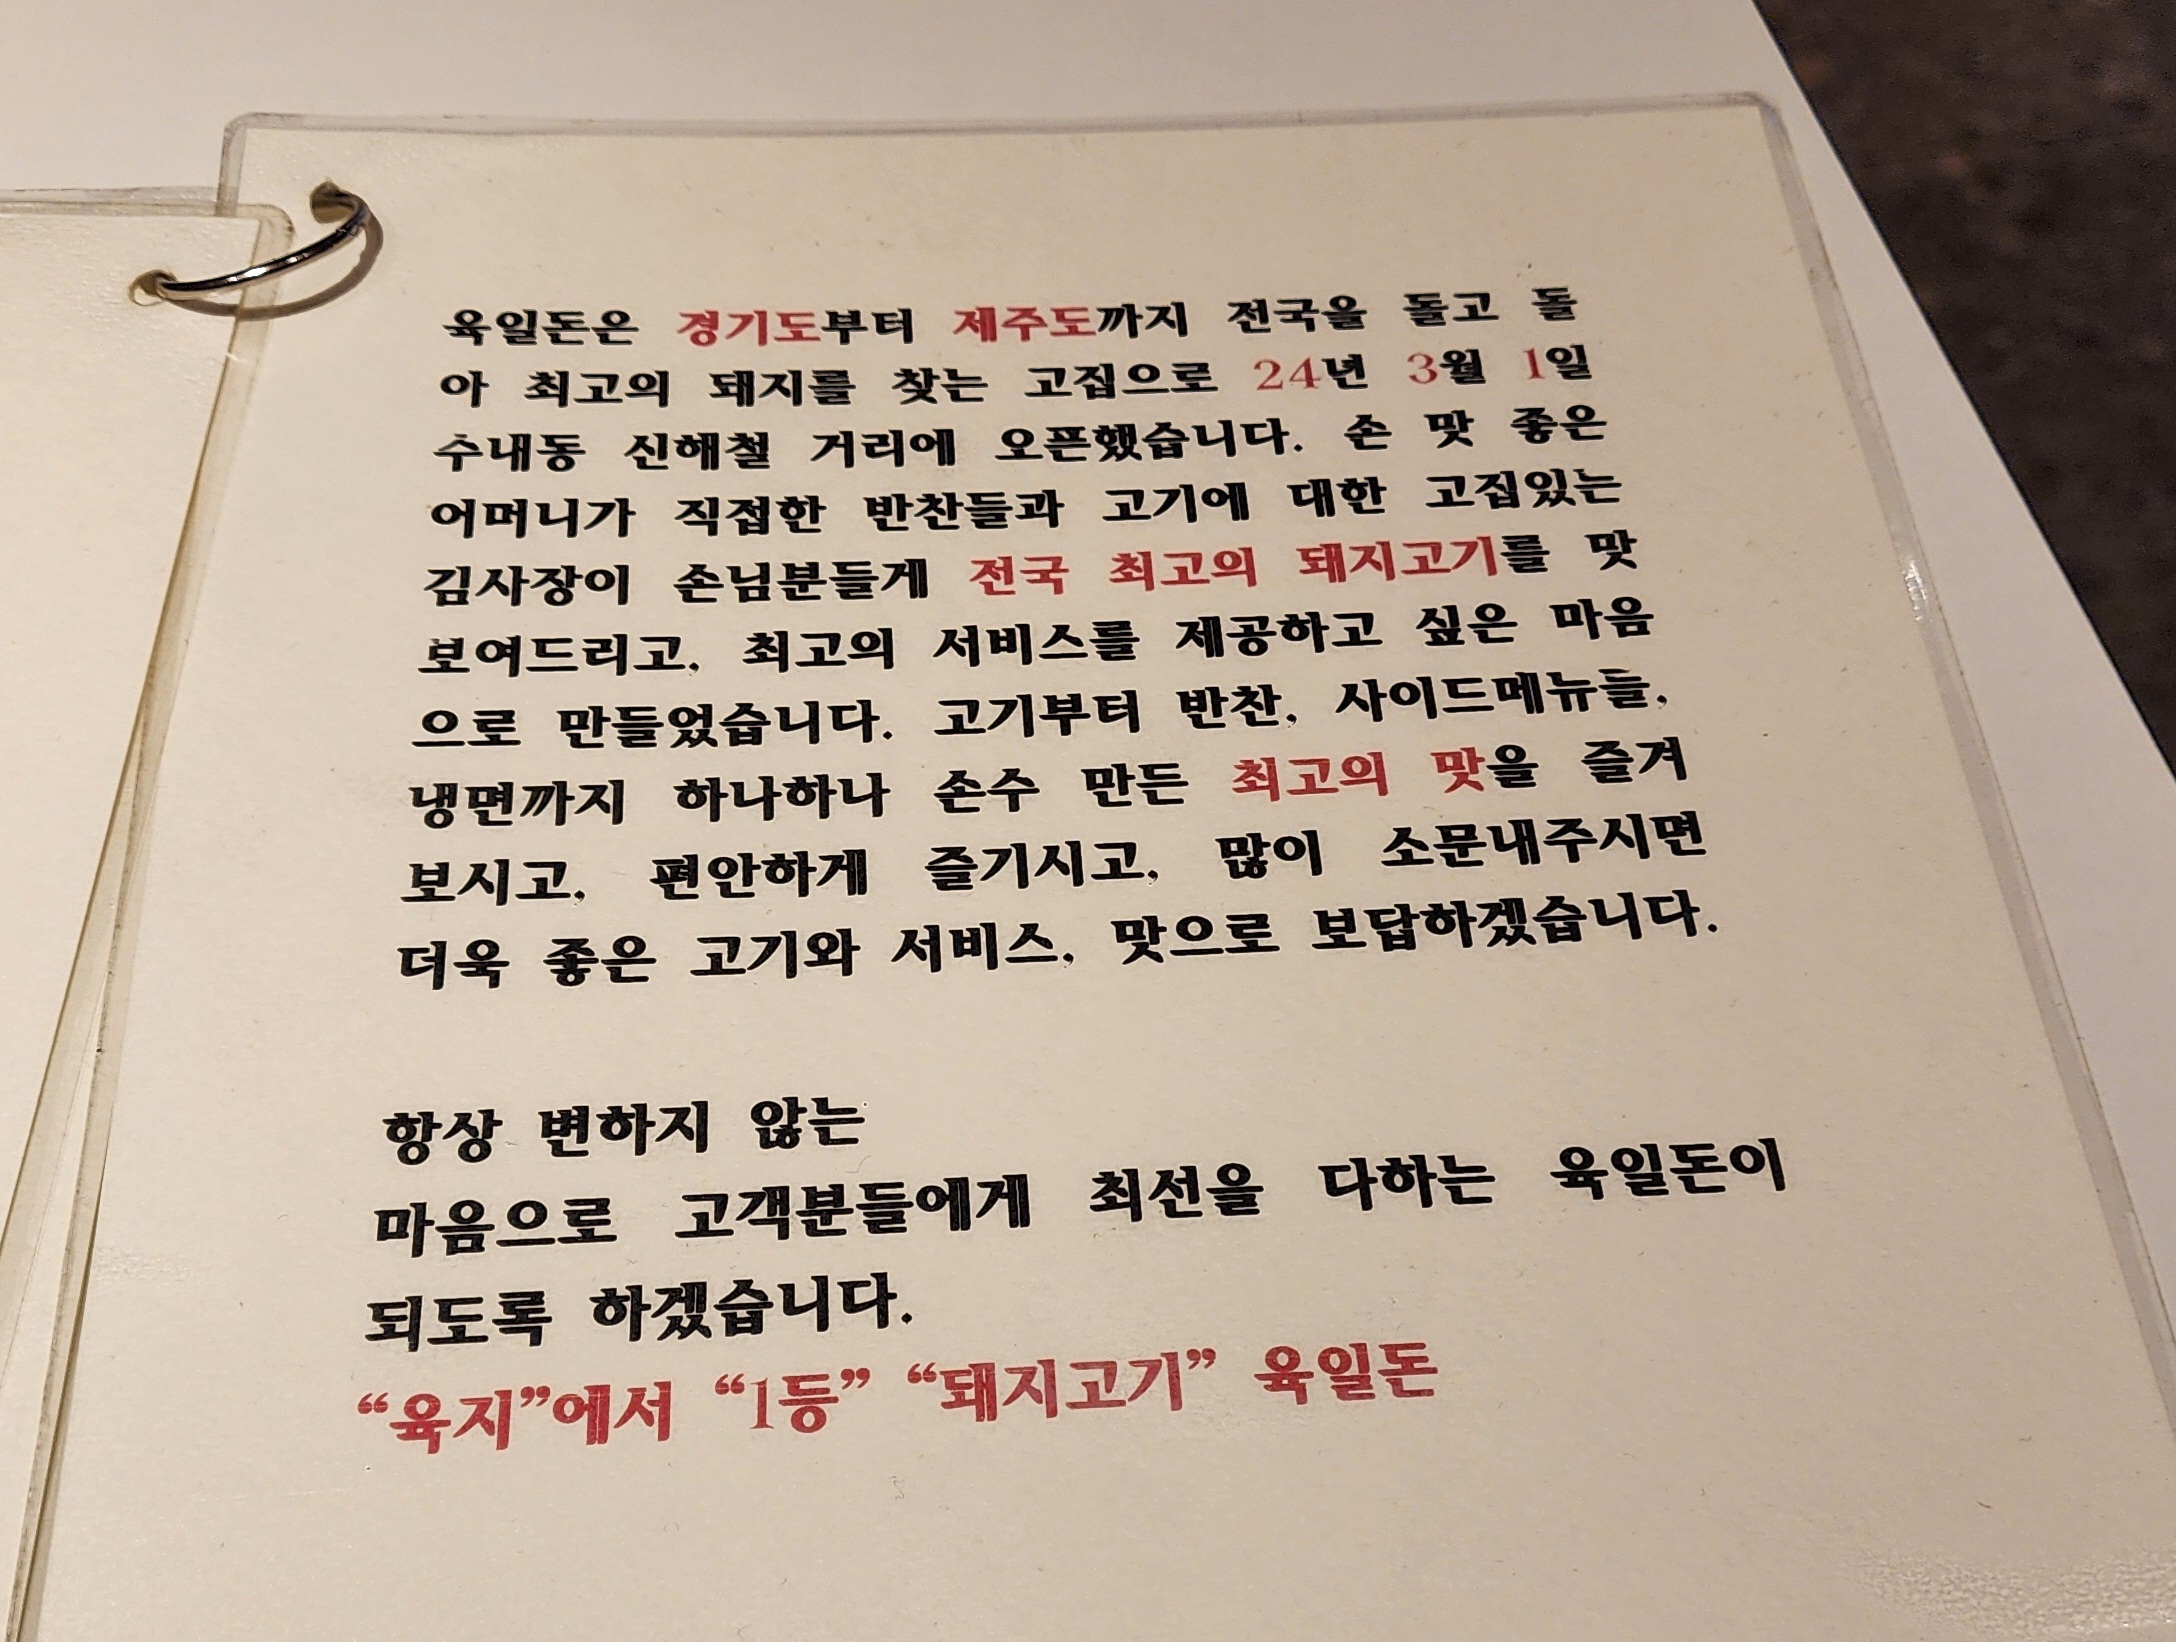 육일돈은 경기도부터 제주도까지 전국을 돌고 돌
아 최고의 돼지를 찾는 고집으로 24년 3월 1일
수내동 신해철 거리에 오픈했습니다. 손 맛 좋은
어머니가 직접한 반찬들과 고기에 대한 고집있는
김사장이 손님분들게 전국 최고의 돼지고기를 맛
보여드리고, 최고의 서비스를 제공하고 싶은 마음
으로 만들었습니다. 고기부터 반찬, 사이드메뉴들,
냉면까지 하나하나 손수 만든 최고의 맛을 즐겨
보시고, 편안하게 즐기시고, 많이 소문내주시면
더욱 좋은 고기와 서비스, 맛으로 보답하겠습니다.
항상 변하지 않는
마음으로 고객분들에게 최선을 다하는 육일돈이
되도록 하겠습니다.
“육지”에서 “1등” “돼지고기” 육일돈